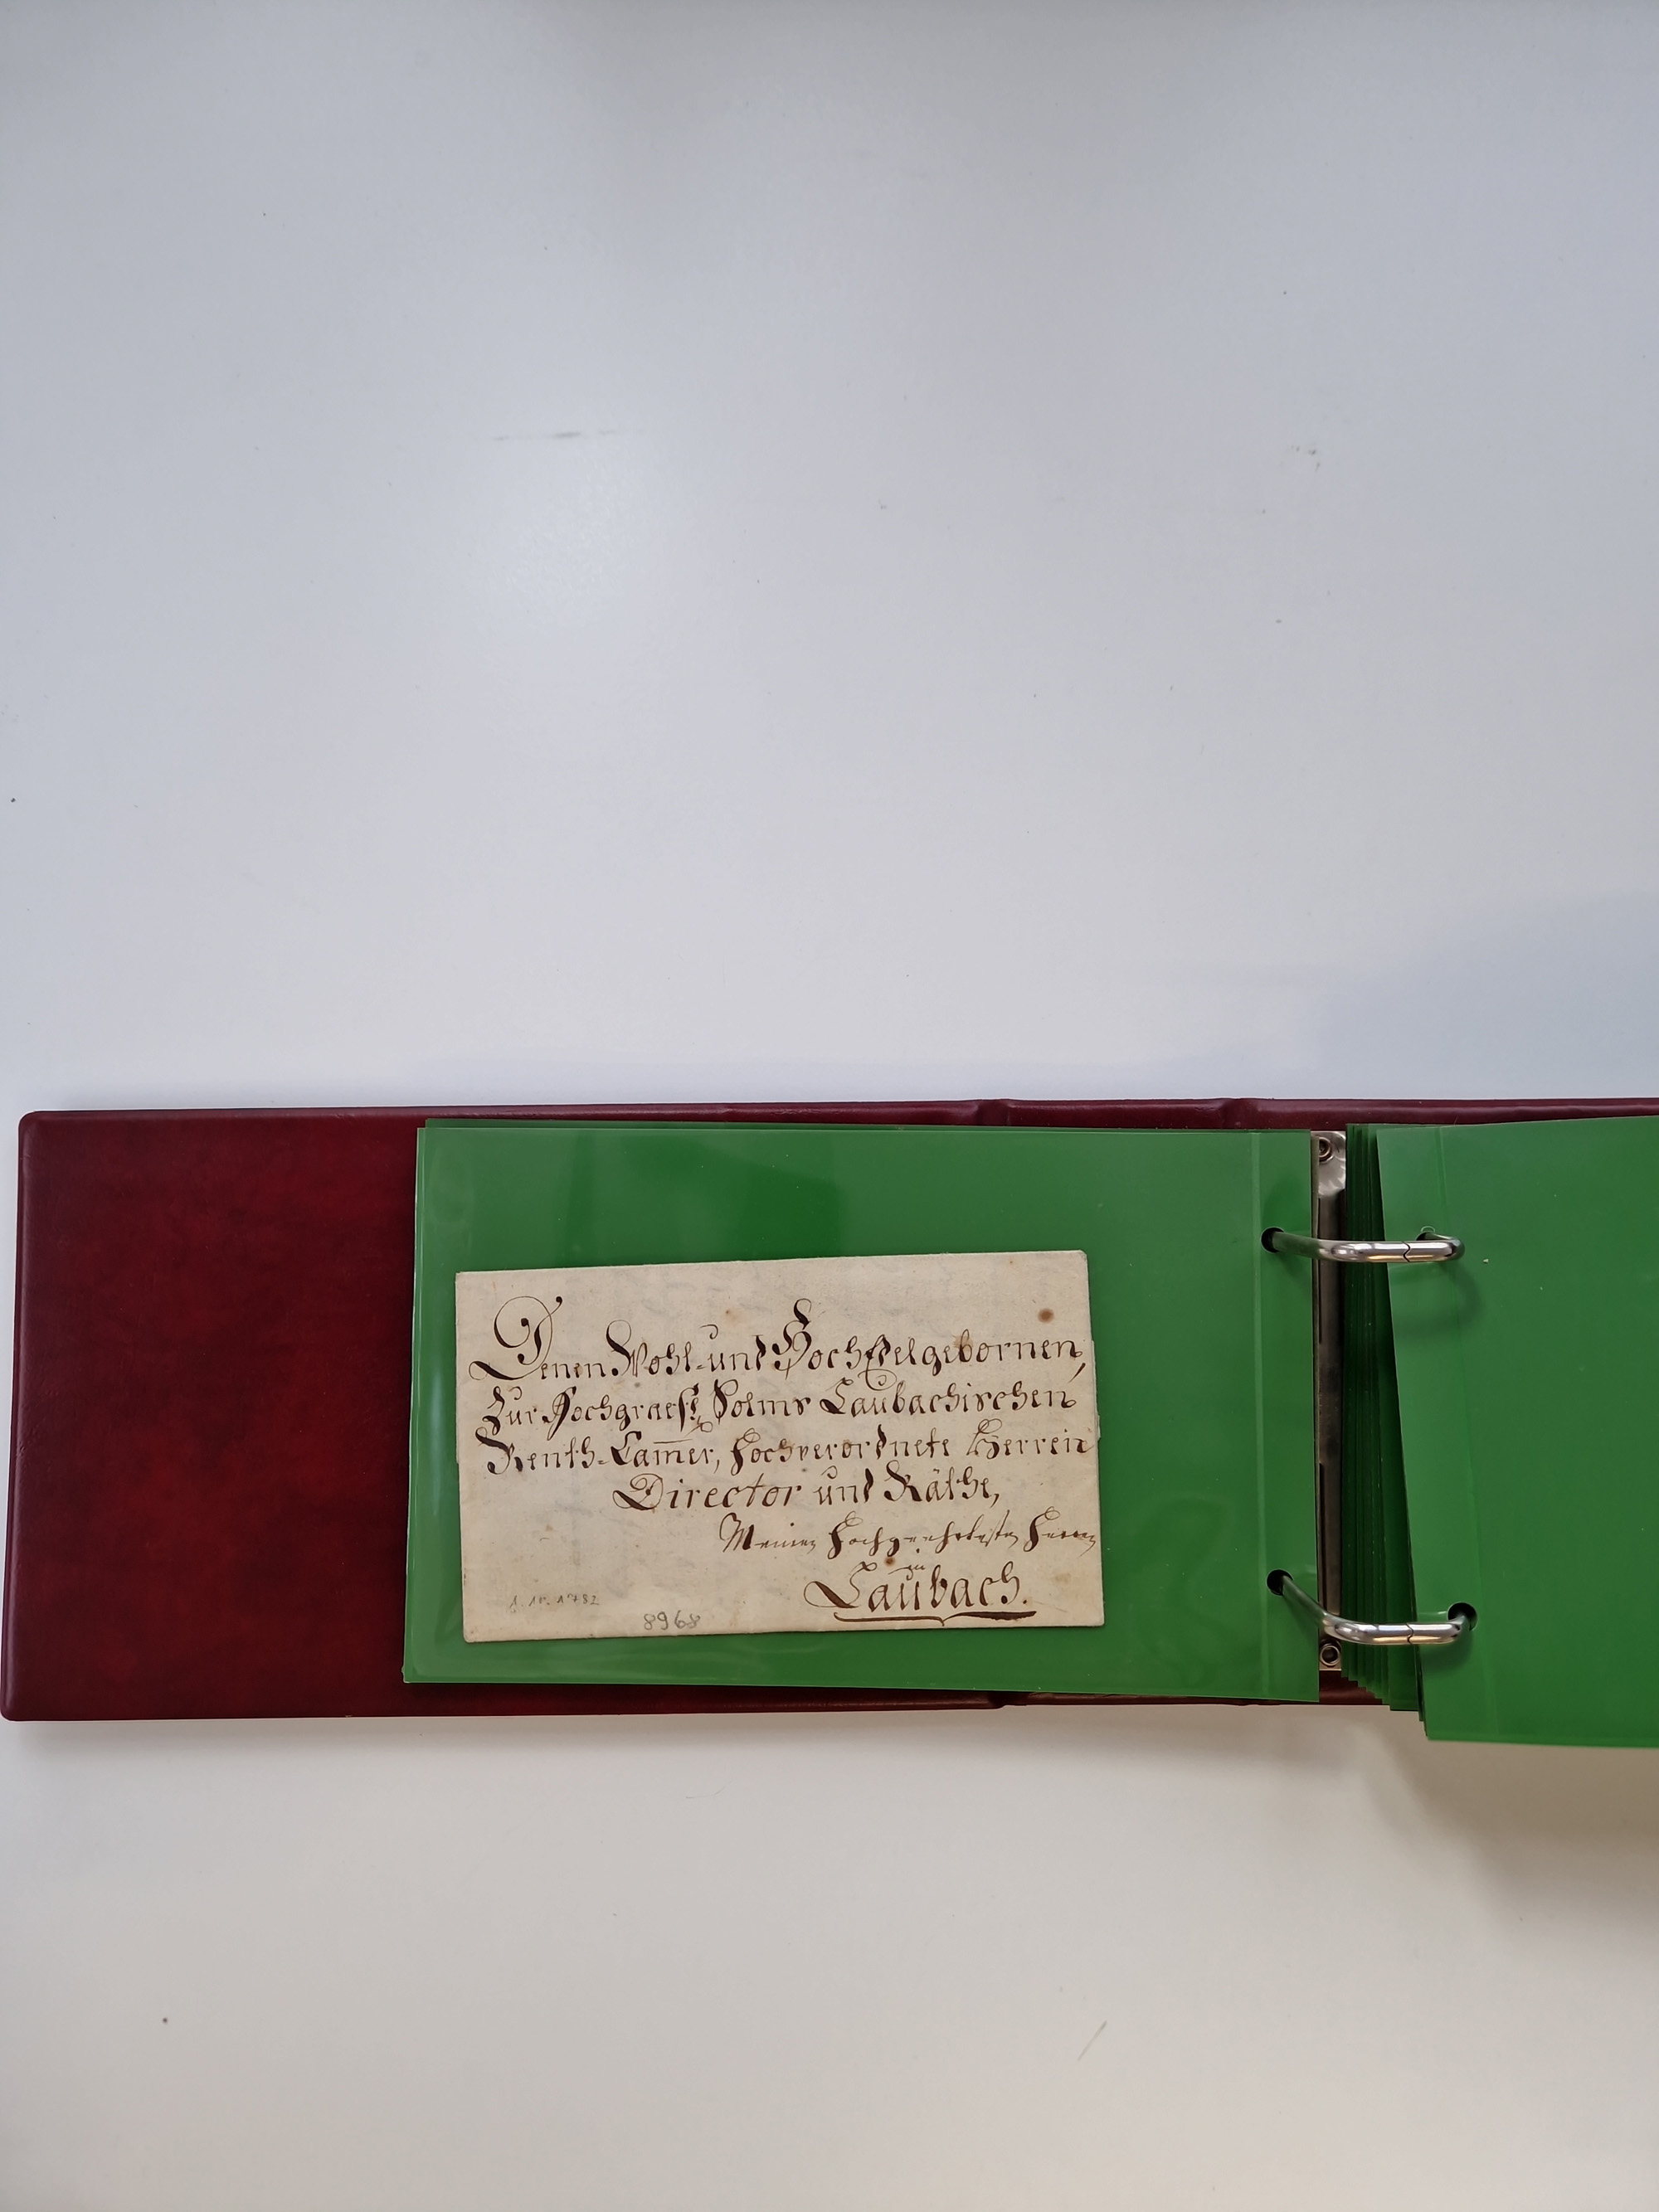 Denen Wohl- und HochEdelgebornen,
Zur Hochgraefl. Solms Laubachischen
Renth-Cam̅er, Hochverordnete Herren
Director und Räthe,
Meinen Hochgeehrtesten Herren
in
Laubach.
1.10.1782
8968